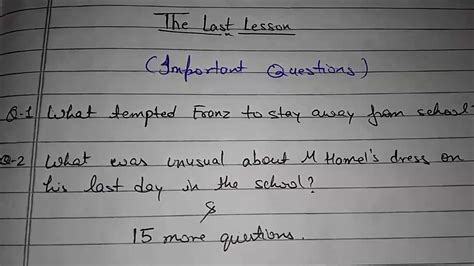 The Last Lesson
(Important Questions)
Q-1 What tempted Franz to stay away from school
Q-2 What was unusual about M Hamel's dress on
his last day in the school?
&
15 more questions.